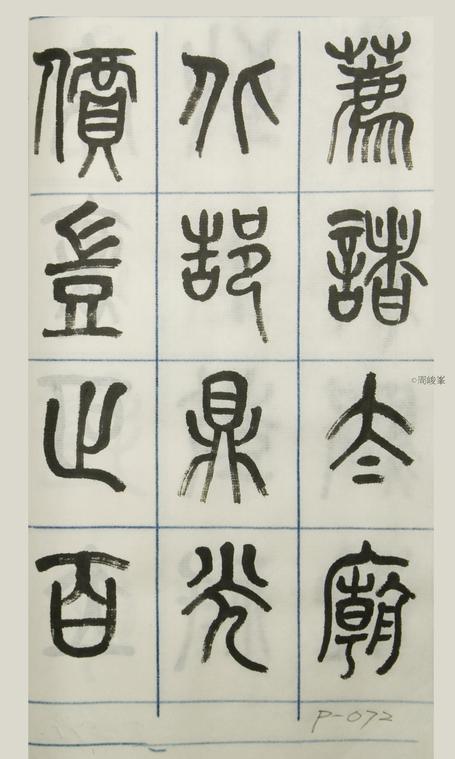 薦諸太廟
比郜鼎光
價豈止百
P-072
©周峻峯